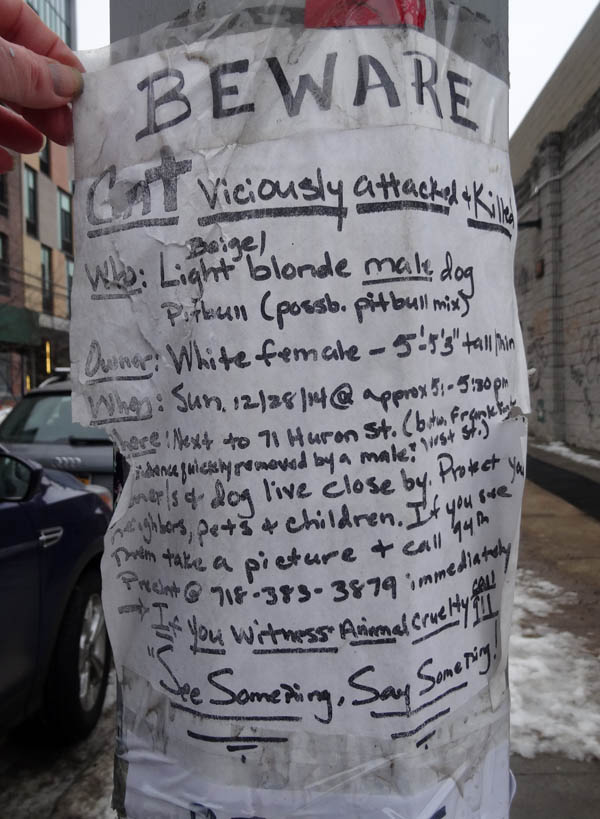 BEWARE
Cat Viciously attacked & Killed
Beige/
Who: Light blonde male dog
Pitbull (possb. pitbull mix)
Owner: White female - 5'-5'3" tall/thin
When: Sun. 12/28/14 @ approx 5:-5:30 pm
Where: Next to 71 Huron St. (btwn. Franklin
West St.)
Evidence quickly removed by a male?
owner/s & dog live close by. Protect you
neighbors, pets & children. If you see
Them take a picture & call 94th
Precint @ 718-383-3879 immediately
→ If you Witness Animal Cruelty CALL
911
"See Something, Say Something!